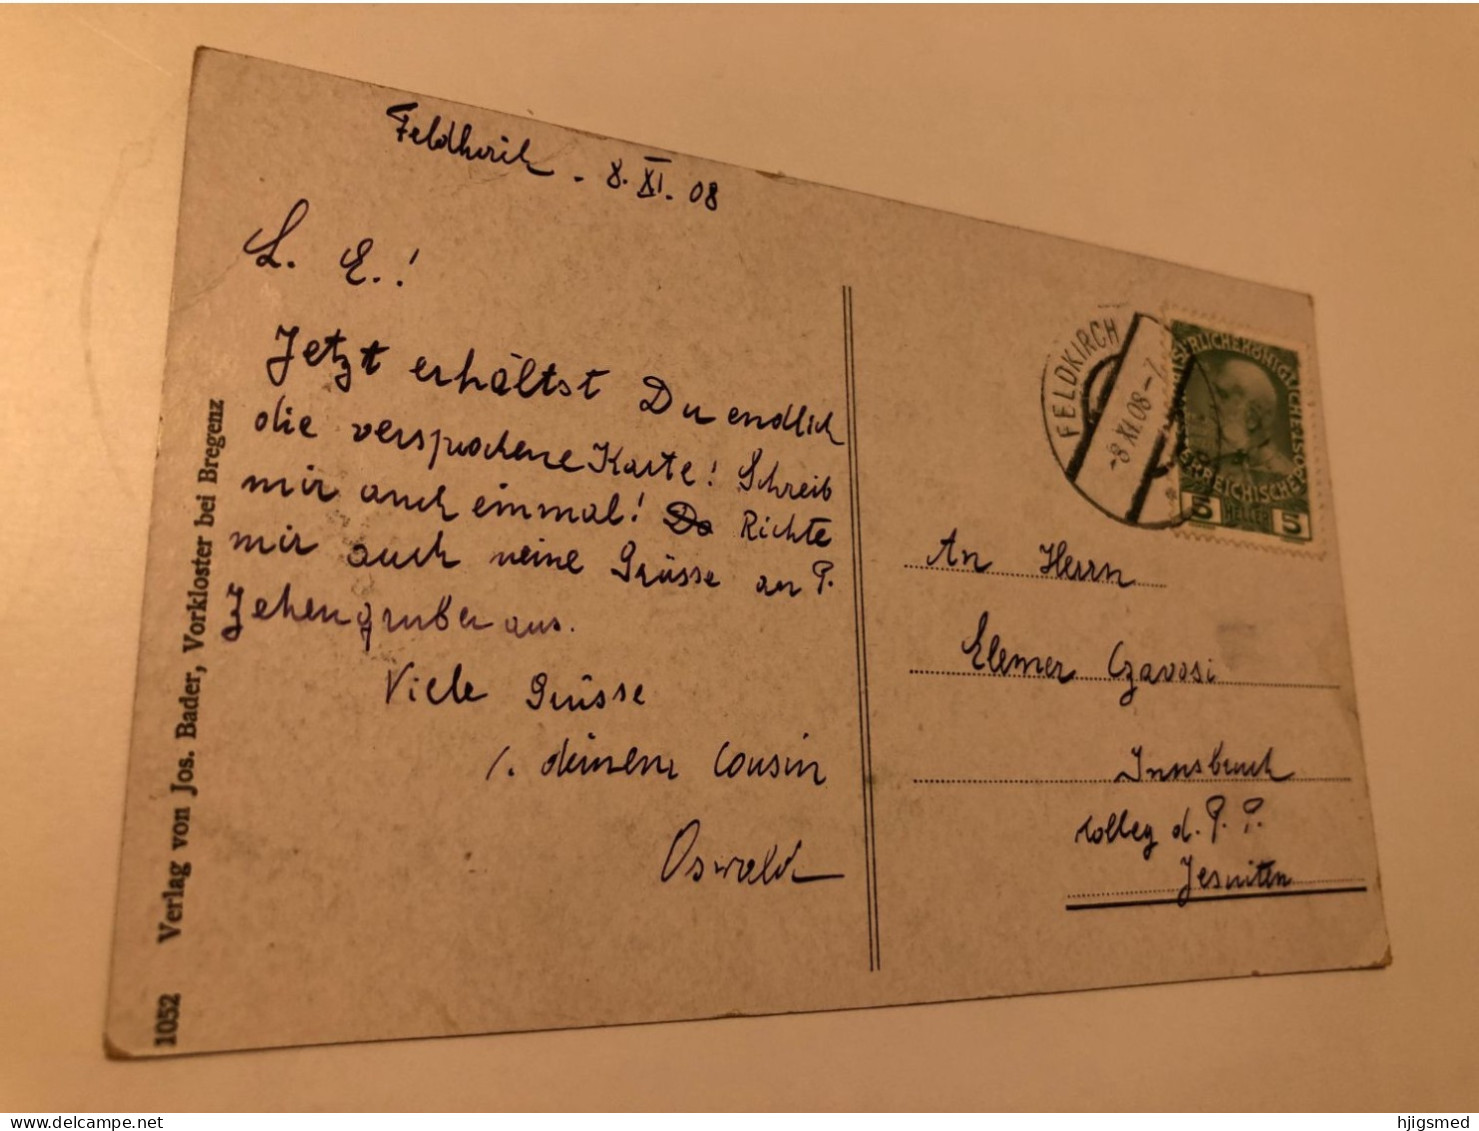 Feldkirch - 8. XI. 08
L. E.!
Jetzt erhältst Du endlich
die versprochene Karte! Schreib
mir auch einmal! Da Richte
mir auch meine Grüsse an P.
Zehengruber aus.
Viele Grüsse
deinem Cousin
Oswald
1052 Verlag von Jos. Bader, Vorkloster bei Bregenz
FELDKIRCH
-8.XI.08-7
KÖNIGLICHE
ÖSTERREICHISCHE
5 HELLER 5
An Herrn
Elemer Czavosi
Innsbruck
Colleg d. P. P.
Jesuiten
hjigsmed